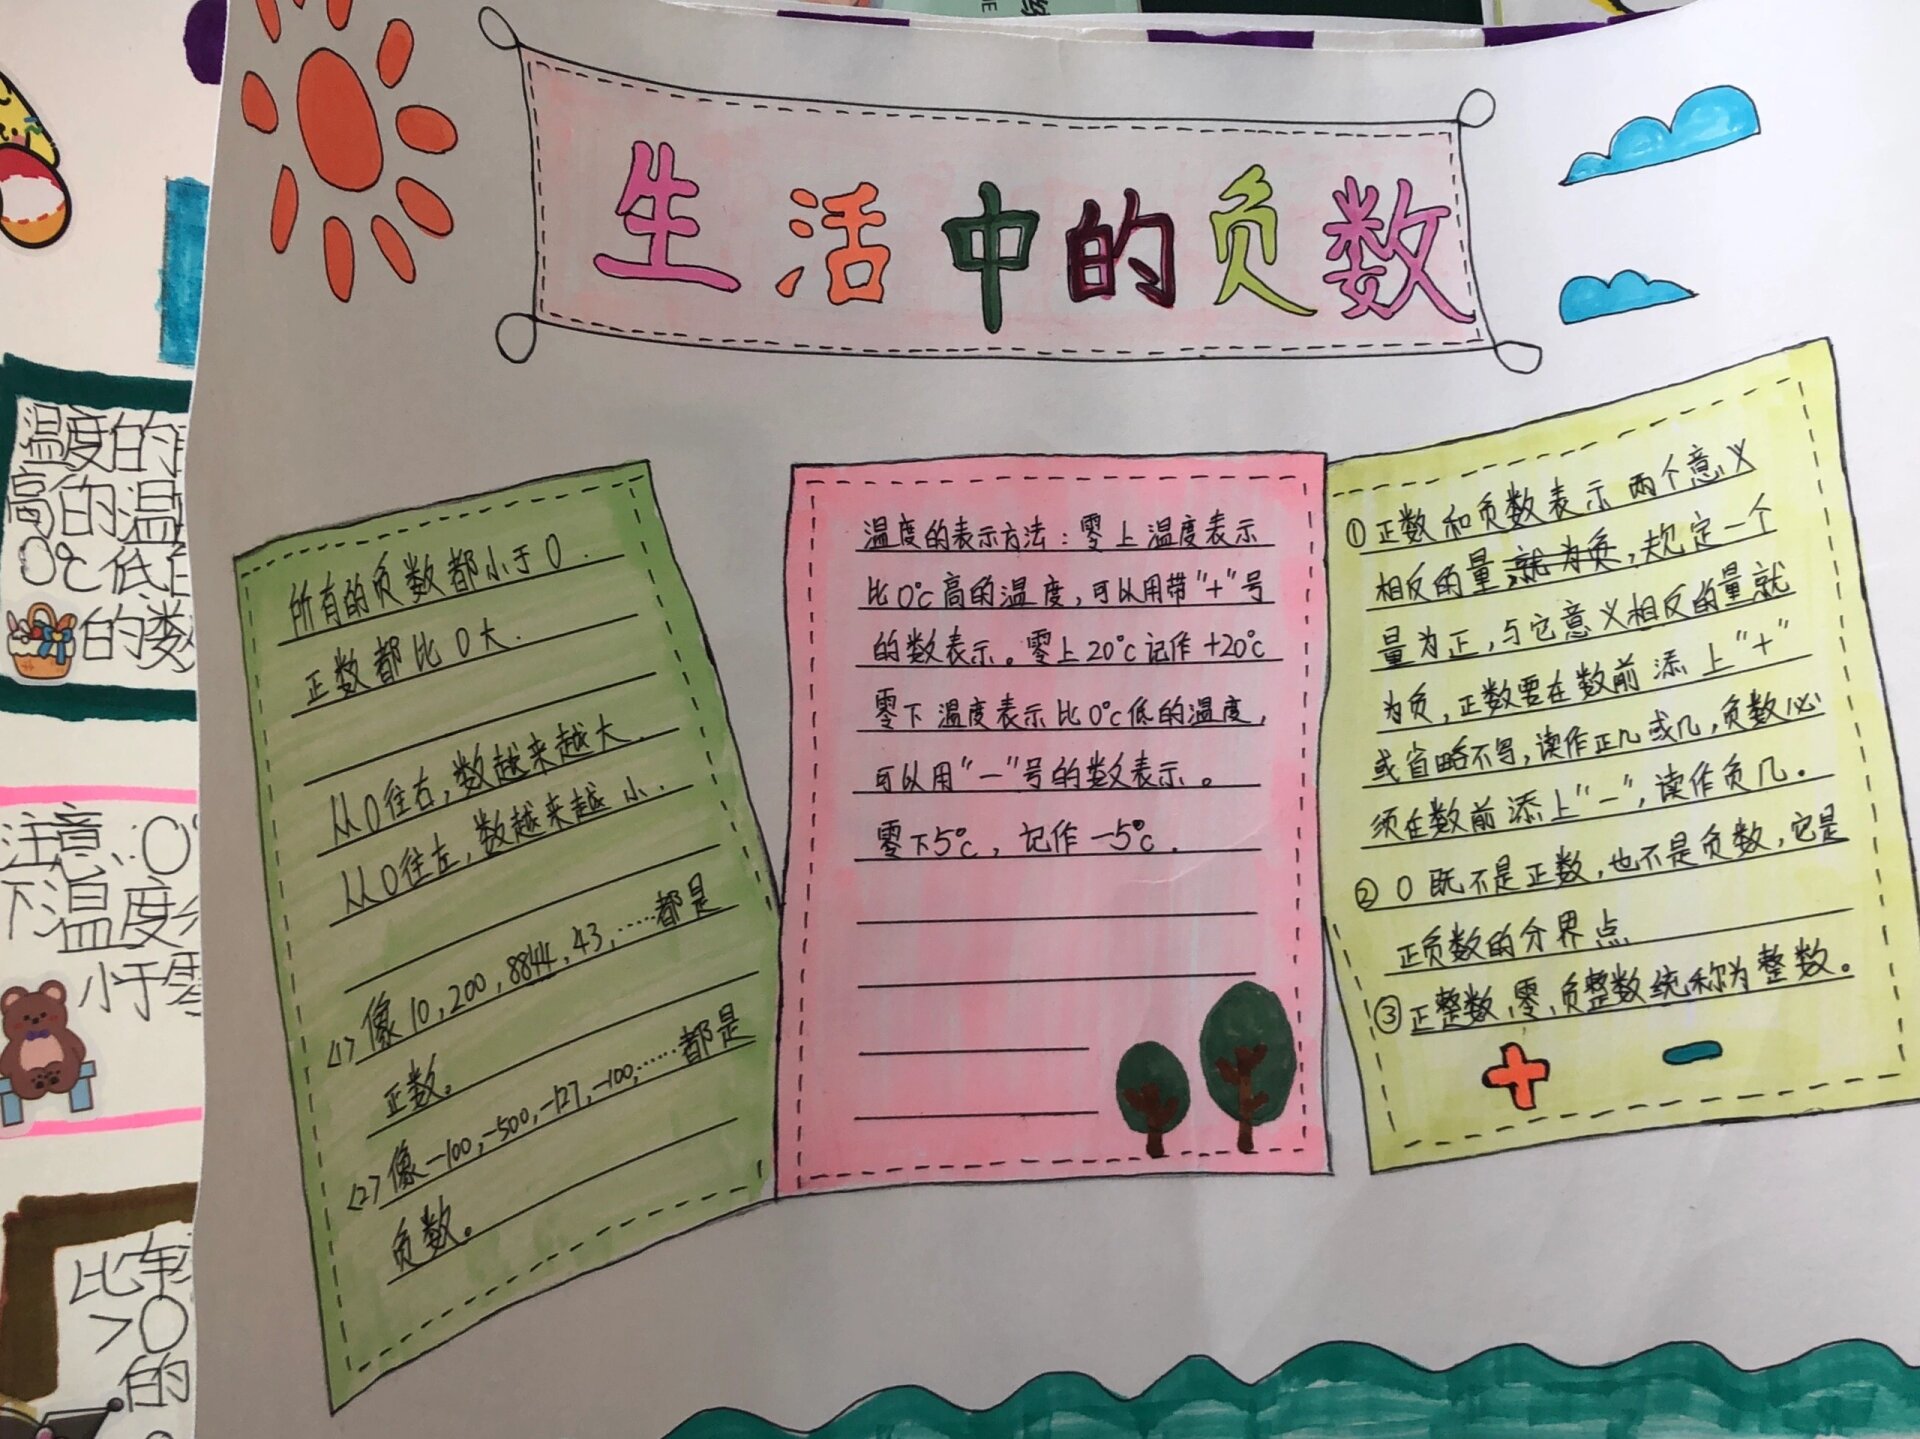 生活中的负数
所有的负数都小于0.
正数都比0大.
从0往右,数越来越大.
从0往左,数越来越小.
<1>像10,200,8844,43,……都是
正数。
<2>像-100,-500,-127,-100,……都是
负数。
温度的表示方法:零上温度表示
比0℃高的温度,可以用带"+"号
的数表示。零上20℃记作+20℃
零下温度表示比0℃低的温度,
可以用"-"号的数表示。
零下5℃,记作-5℃.
①正数和负数表示两个意义
相反的量,就为负,规定一个
量为正,与它意义相反的量就
为负,正数要在数前添上"+"
或省略不写,读作正几或几,负数必
须在数前添上"-",读作负几。
②0既不是正数,也不是负数,它是
正负数的分界点
③正整数,零,负整数统称为整数。
+ -
温度的
高的温
0℃低
的数
注意:0°
下温度
小于零
比
>0
的